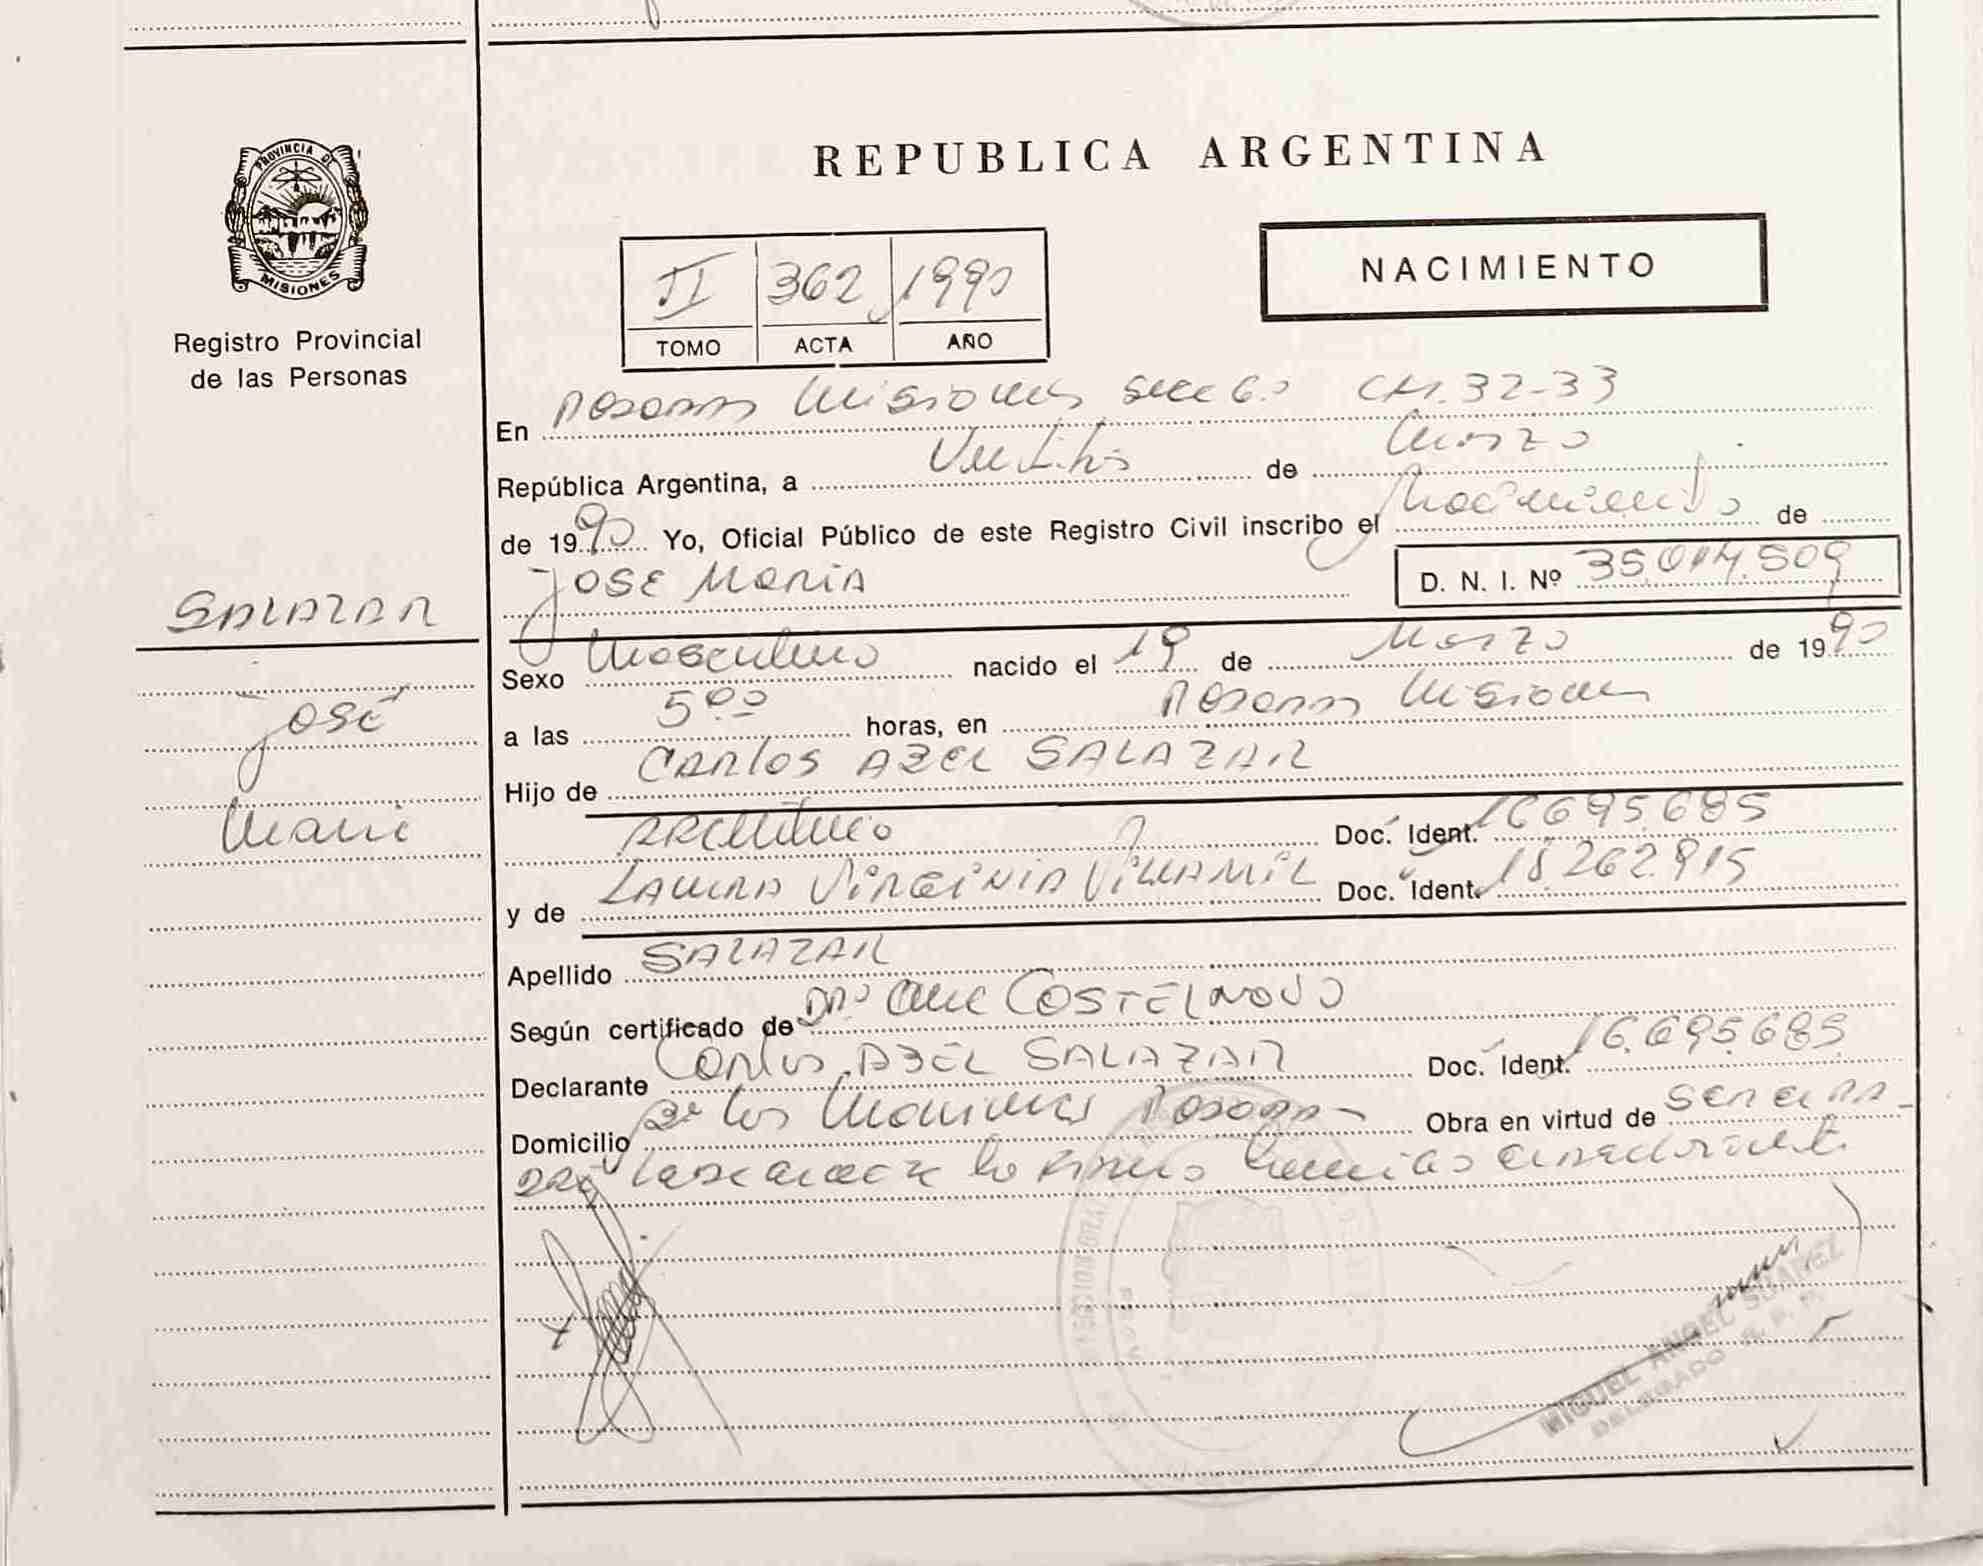 PROVINCIA DE
MISIONES
Registro Provincial
de las Personas
SALAZAR
José
Maria
REPUBLICA ARGENTINA
II 362 1990
TOMO ACTA AÑO
NACIMIENTO
En Posadas Misiones Secc 6.a 32-33
República Argentina, a de Marzo
de 1990 Yo, Oficial Público de este Registro Civil inscribo el Nacimiento de
JOSE MARIA D. N. I. Nº 35.014.509
Sexo Masculino nacido el 19 de Marzo de 1990
a las 5 00 horas, en Posadas Misiones
Hijo de Carlos AZEL SALAZAR
Argentino Doc. Ident. 16.695.685
y de LAURA VIRGINIA VILLAMIL Doc. Ident. 18.262.915
Apellido SALAZAR
Según certificado de
Declarante Carlos AZEL SALAZAR Doc. Ident. 16.695.685
Domicilio Posadas Obra en virtud de
MIGUEL ANGEL SUAREZ
DELEGADO R. P. P.